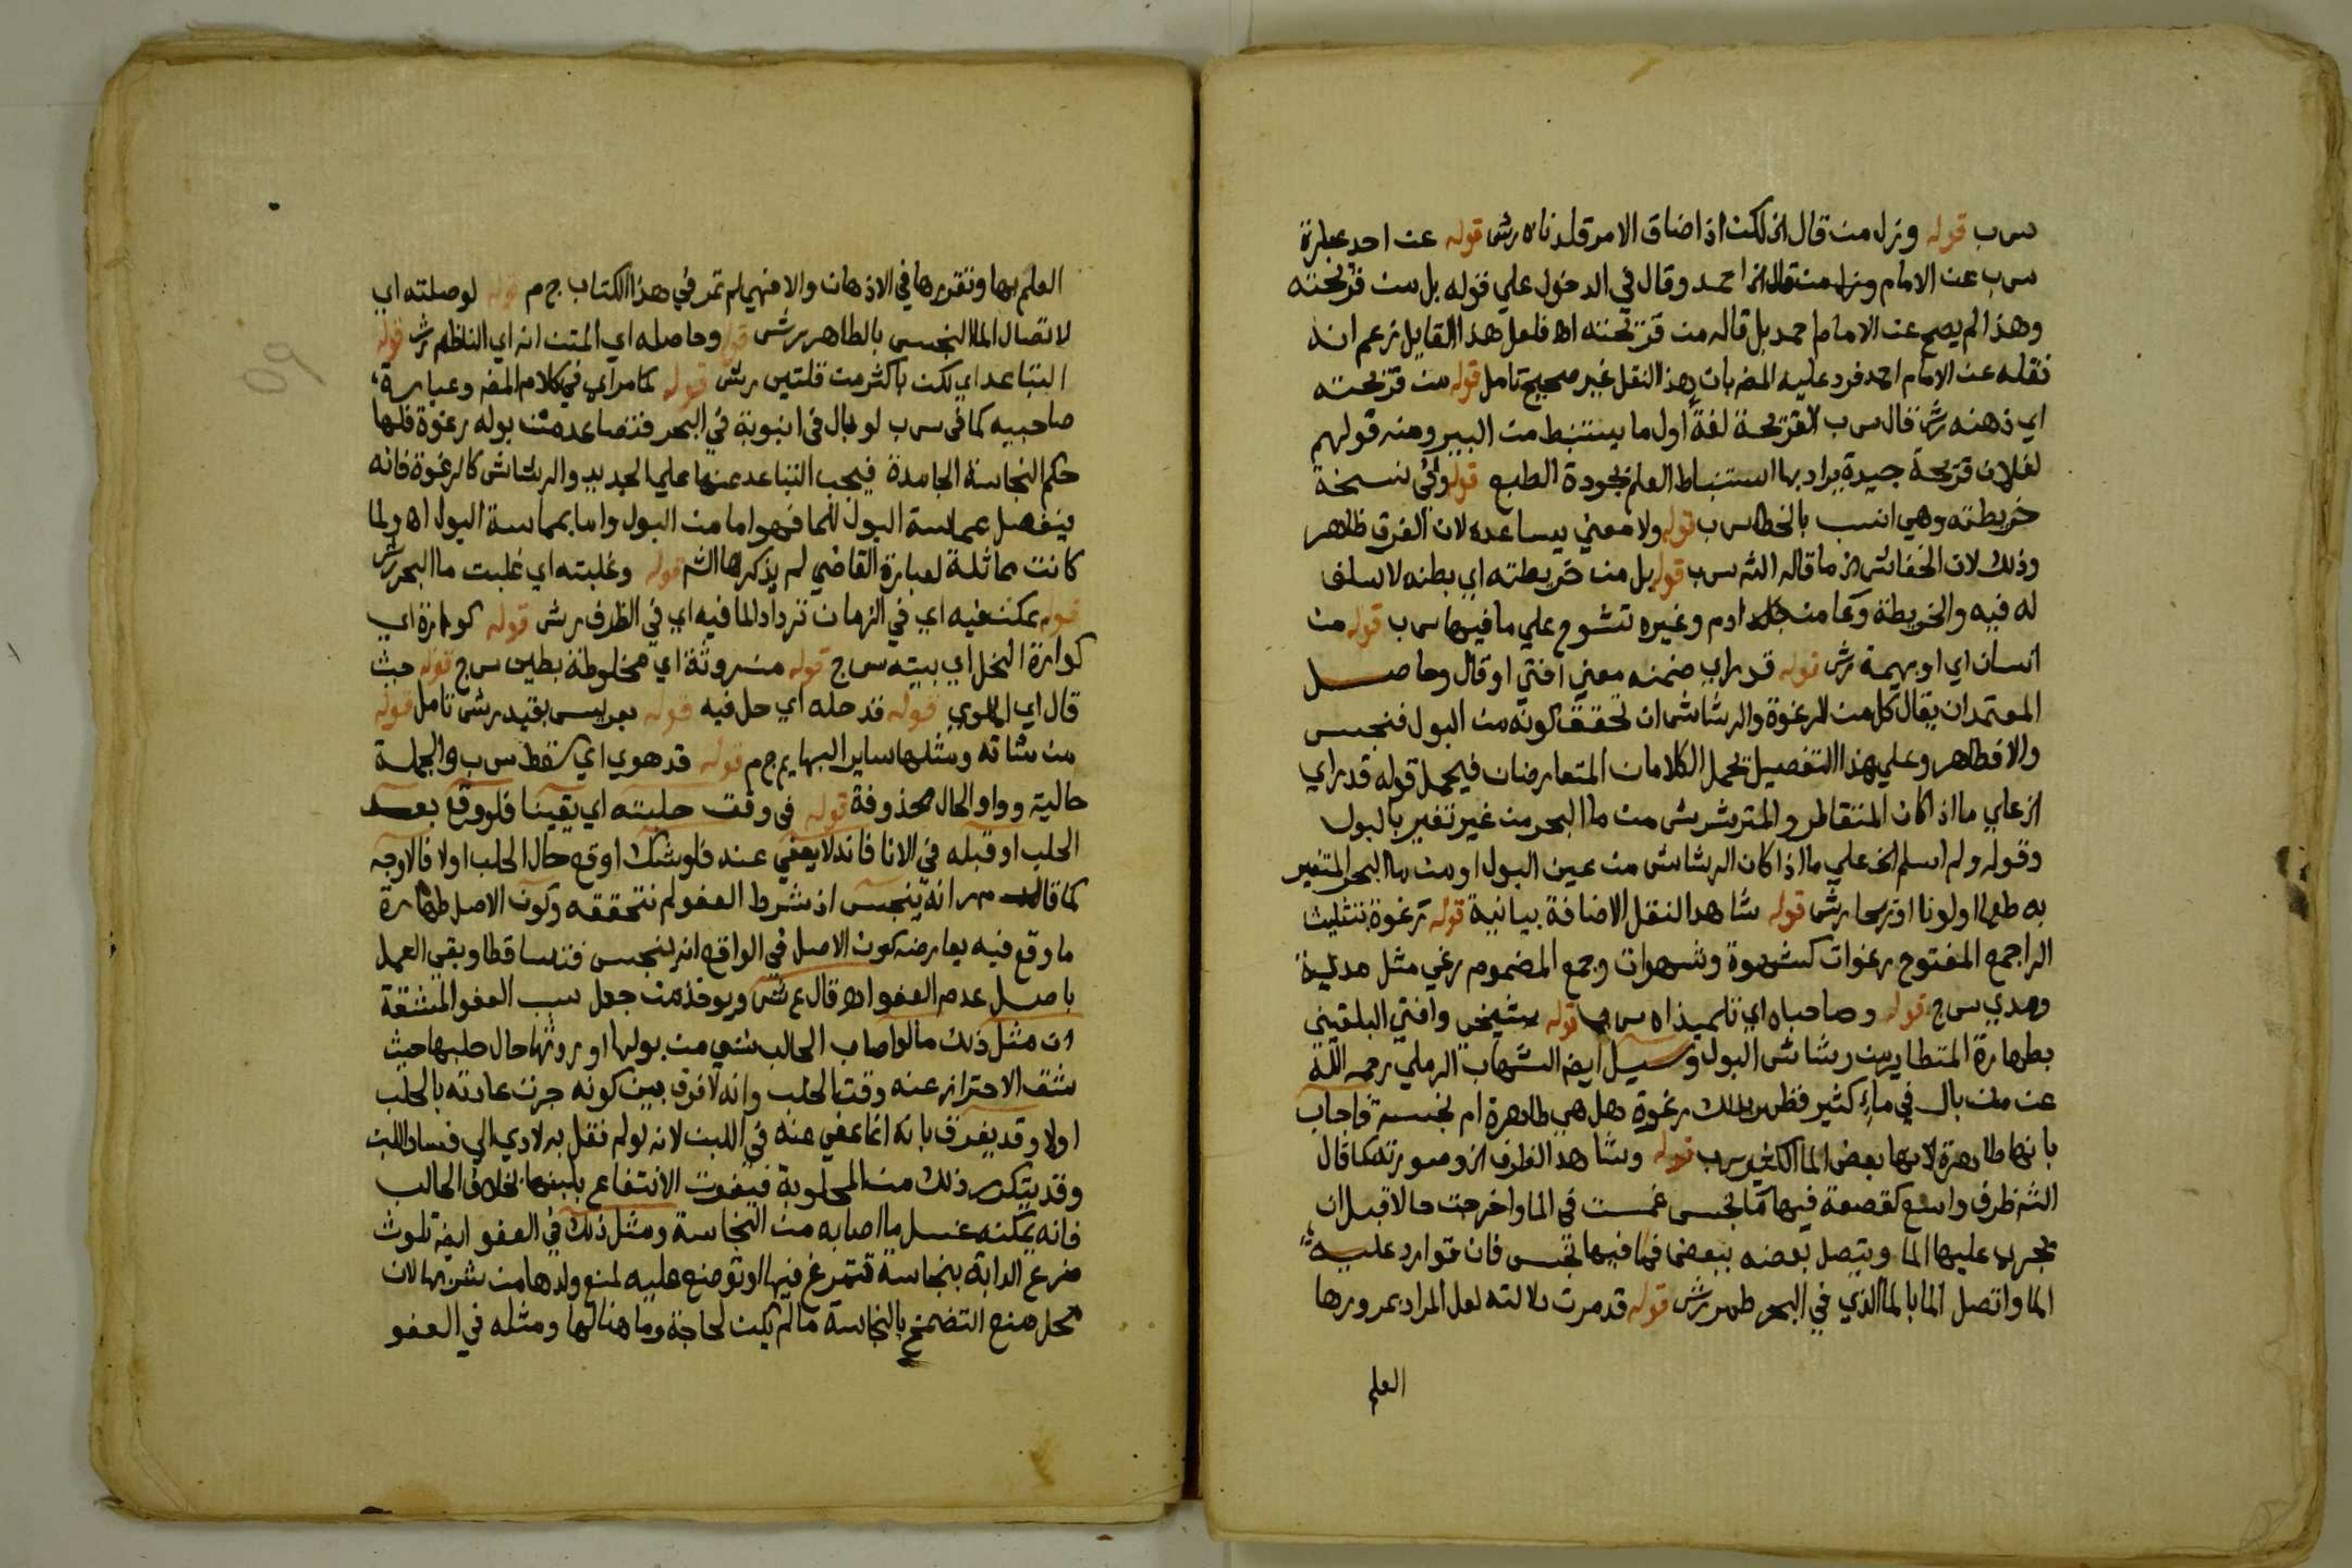 س ب قوله ونزل من قال الخ لكن اذا ضاق الامر قلدناه رش قوله عن احد عبارة
س ب عن الامام ونزل من قال الخ احمد وقال في الدخول علي قوله بل من قريحته
وهذا لم يصح عن الامام احمد بل قاله من قريحته اه فلعل هذا القايل زعم انه
نقله عن الامام احمد فرد عليه المص بان هذا النقل غير صحيح تامل قوله من قريحته
اي ذهنه رش قال س ب القريحة لغة اول ما يستنبط من البير ومنه قولهم
لفلان قريحة جيدة يراد بها استنباط العلم بجودة الطبع قوله وفي نسخة
خريطته وهي انسب بالخطا س ب قوله ولا معني يساعده لان الفرق ظاهر
وذلك لان الخفاش الخ ما قاله الش س ب قوله بل من خريطته اي بطنه لا سلف
له فيه والخريطة وعا من جلد ادم وغيره تشرج علي ما فيها س ب قوله من
انسان اي او بهيمة رش قوله قد راي ضمنه معني افتي او قال وحاصل
المعتمد ان يقال كل من الرغوة والرشاش ان تحقق كونه من البول فنجس
والا فطاهر وعلي هذا التفصيل يحمل الكلامان المتعارضان فيحمل قوله قد راي
الخ علي ما اذا كان المتقاطر والمترشرش من ما البحر من غير تغير بالبول
وقوله ولم اسلم الخ علي ما اذا كان الرشاش من عين البول او من ما البحر المتغير
به طعما او لونا او ريحا رش قوله شاهد النقل الاضافة بيانية قوله ترغوة بتثليث
الرا جمع المفتوح رغوات كشهوة وشهوات وجمع المضموم رغي مثل مدية
ومدي س ج قوله وصاحباه اي تلميذاه س ب قوله شيخي وافتي البلقيني
بطهارة المتطاير من رشاش البول وسيل ايض الشهاب الرملي رحمه الله
عن من بال في ماء كثير فظهر بذلك رغوة هل هي طاهرة ام نجسة فاجاب
بانها طاهرة لانها بعض الما الكثير س ب قوله وشاهد الظرف الخ وصورته كما قال
الش ظرف واسع كقصعة فيها ما نجس غمست في الما واخرجت حالا قبل ان
يجري عليها الما ويتصل بعضه ببعض فما فيها نجس فان توارد عليه
الما واتصل الما بالما الذي في البحر طهر رش قوله قد مرت دلالته لعل المراد بمرورها
العلم
العلم بها وتقررها في الاذهان والا فهي لم تمر في هذا الكتاب ج م قوله لوصلته اي
لاتصال الما النجس بالطاهر رش قوله وحاصله اي المتن انه اي الناظم رش قوله
التباعد اي لكن باكثر من قلتين رش قوله كما مر اي في كلام المص وعبارة
صاحبيه كما في س ب لو بال في انبوبة في البحر فتصاعد من بوله رغوة فلها
حكم النجاسة الجامدة فيجب التباعد عنها علي الجديد والرشاش كالرغوة فانه
ينفصل بمماسة البول للما فهو اما من البول واما بمماسة البول اه ولما
كانت مماثلة لعبارة القاضي لم يذكرها الش قوله وغلبته اي غلبت ما البحر رش
قوله يمكن فيه اي في الزمان تردادا لما فيه اي في الظرف رش قوله كوارة اي
كوارة النحل اي بيته س ج قوله مسروثة اي مخلوطة بطين س ج قوله حيث
قال اي الهروي قوله قد حله اي حل فيه قوله بعر ليس بقيد رش تامل قوله
من شاته ومثلها ساير البهايم ج م قوله قد هوي اي سقط س ب والجملة
حالية وواو الحال محذوفة قوله في وقت حلبته اي يقينا فلو وقع بعد
الحلب او قبله في الانا فانه لا يعفي عنه فلو شك اوقع حال الحلب اولا فالاوجه
كما قاله م ر انه ينجس اذ شرط العفو لم نتحققه وكون الاصل طهارة
ما وقع فيه يعارضه كون الاصل في الواقع انه ينجس فتساقطا وبقي العمل
باصل عدم العفو اه قال ع ش ويوخذ من جعل سبب العفو المشقة
ان مثل ذلك ما لو اصاب الحالب شي من بولها او روثها حال حلبها حيث
شق الاحتراز عنه وقت الحلب وانه لا فرق بين كونه جرت عادته بالحلب
اولا وقد يفرق بانه انما عفي عنه في اللبن لانه لو لم نقل به لادي الي فساد اللبن
وقد يتكرر ذلك من المحلوبة فيفوت الانتفاع بلبنها بخلاف الحالب
فانه يمكنه غسل ما اصابه من النجاسة ومثل ذلك في العفو ايض تلوث
ضرع الدابة بنجاسة تتمرغ فيها او توضع عليه لمنع ولدها من شربها لان
محل منع التضمخ بالنجاسة ما لم يكن لحاجة وما هنا لها ومثله في العفو